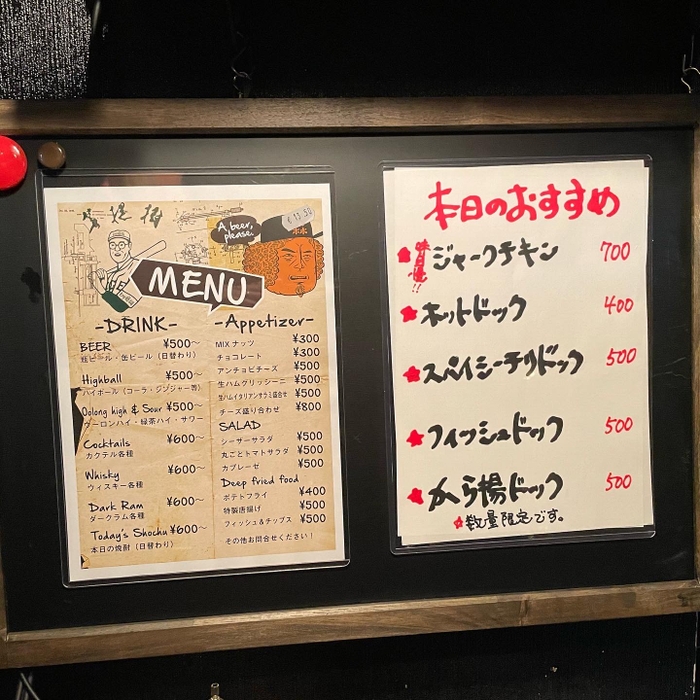 A beer,
please.
MENU
-DRINK-
BEER ¥500～
瓶ビール・缶ビール（日替わり）
Highball ¥500～
ハイボール（コーラ・ジンジャー等）
Oolong high & Sour ¥500～
ウーロンハイ・緑茶ハイ・サワー
Cocktails ¥600～
カクテル各種
Whisky ¥600～
ウィスキー各種
Dark Ram ¥600～
ダークラム各種
Today's Shochu ¥600～
本日の焼酎（日替わり）
-Appetizer-
MIX ナッツ ¥300
チョコレート ¥300
アンチョビチーズ ¥500
生ハムグリッシーニ ¥500
生ハムイタリアンサラミ盛合せ ¥500
チーズ盛り合わせ ¥800
SALAD
シーザーサラダ ¥500
丸ごとトマトサラダ ¥500
カプレーゼ ¥500
Deep fried food
ポテトフライ ¥400
特製唐揚げ ¥500
フィッシュ&チップス ¥500
その他お問合せください！
本日のおすすめ
ジャークチキン 700
ホットドック 400
スパイシーチリドック 500
フィッシュドック 500
から揚ドック 500
数量限定です。